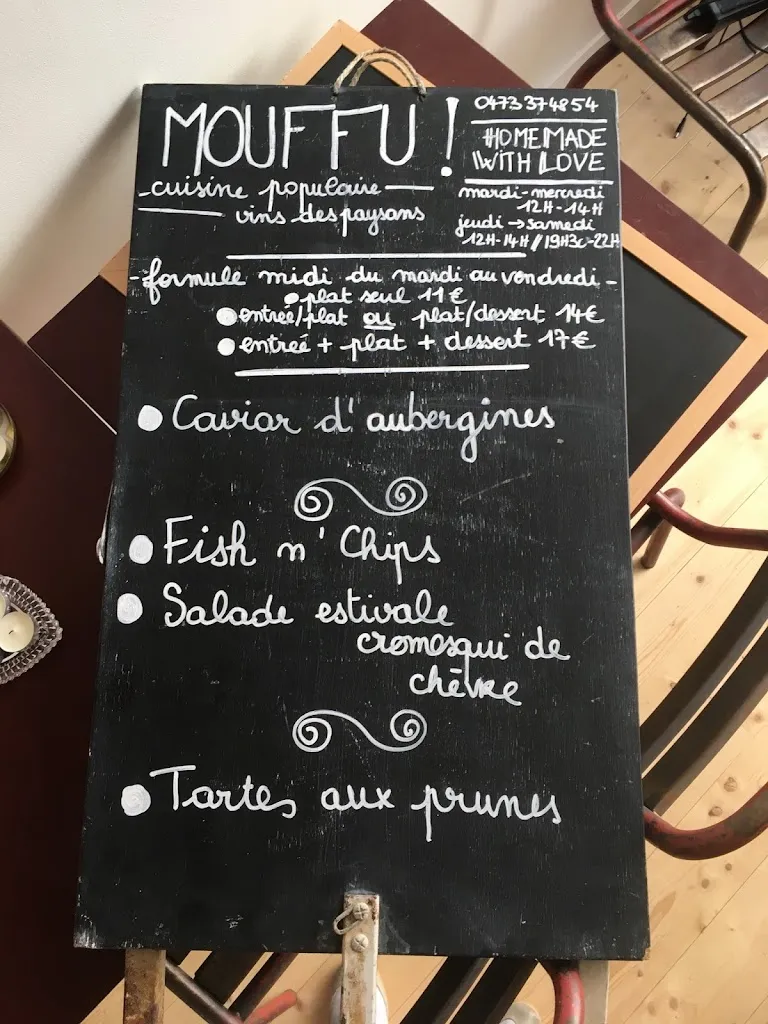 MOUFFU !
0473374854
HOMEMADE
WITH LOVE
cuisine populaire
vins des paysans
mardi-mercredi
12H-14H
jeudi → samedi
12H-14H / 19H30-22H
-formule midi du mardi au vendredi-
• plat seul 11€
• entrée/plat ou plat/dessert 14€
• entrée + plat + dessert 17€
• Caviar d'aubergines
• Fish n' Chips
• Salade estivale
cromesqui de
chèvre
• Tartes aux prunes